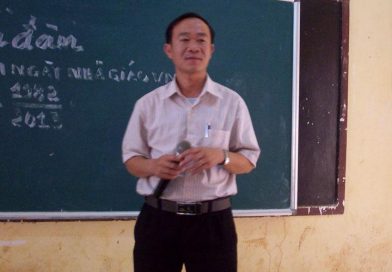 đàn
NGÀY NHÀ GIÁO VN
1982
2013